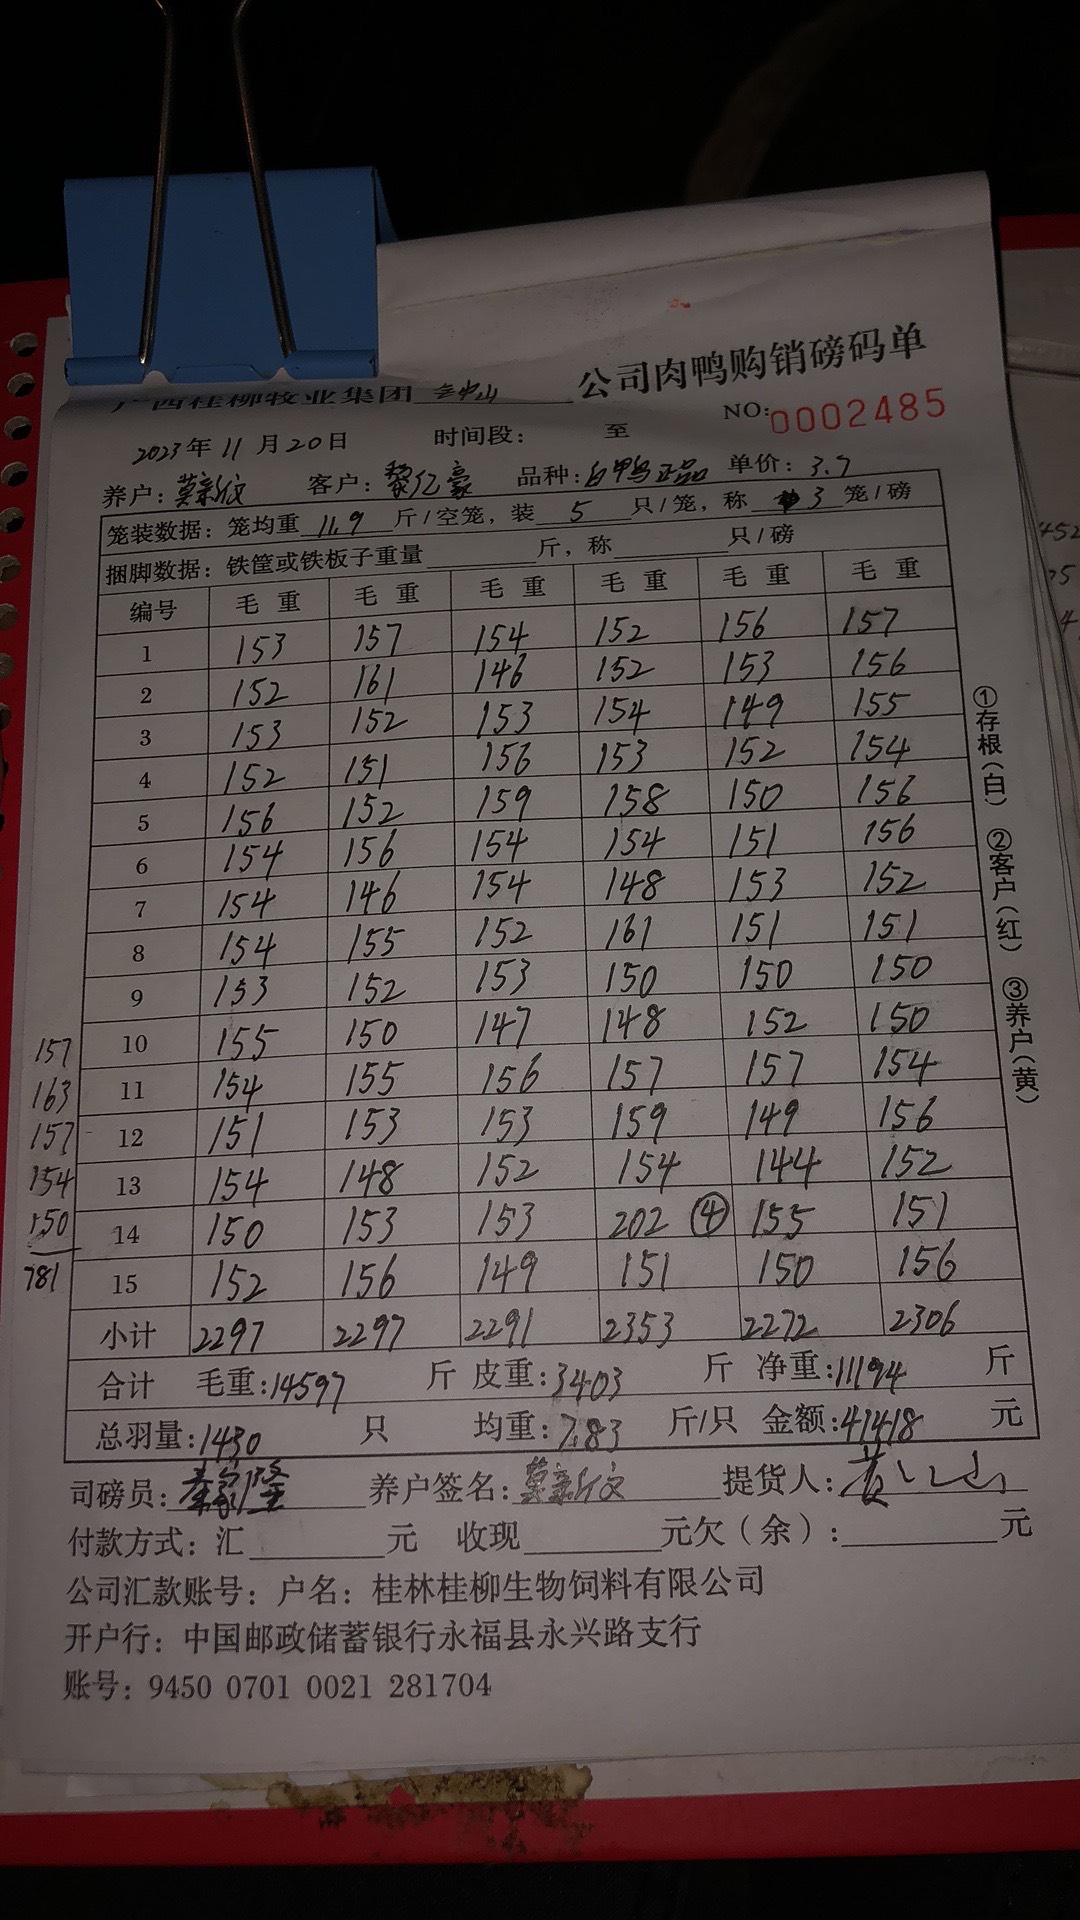 广西桂柳牧业集团 公司肉鸭购销磅码单
NO:0002485
2023年 11 月 20 日 时间段: 至
养户: 莫新文 客户: 黎亿豪 品种: 白鸭正品 单价: 3.7
笼装数据: 笼均重 11.9 斤/空笼, 装 5 只/笼, 称 3 笼/磅
捆脚数据: 铁筐或铁板子重量 斤, 称 只/磅
编号 毛重 毛重 毛重 毛重 毛重 毛重
1 153 157 154 152 156 157
2 152 161 146 152 153 156
3 153 152 153 154 149 155
4 152 151 156 153 152 154
5 156 152 159 158 150 156
6 154 156 154 154 151 156
7 154 146 154 148 153 152
8 154 155 152 161 151 151
9 153 152 153 150 150 150
10 155 150 147 148 152 150
11 154 155 156 157 157 154
12 151 153 153 159 149 156
13 154 148 152 154 144 152
14 150 153 153 202 ④ 155 151
15 152 156 149 151 150 156
小计 2297 2297 2291 2353 2272 2306
合计 毛重: 14597 斤 皮重: 3403 斤 净重: 11194 斤
总羽量: 1430 只 均重: 7.83 斤/只 金额: 41418 元
司磅员: 养户签名: 莫新文 提货人:
付款方式: 汇 元 收现 元欠(余): 元
公司汇款账号: 户名: 桂林桂柳生物饲料有限公司
开户行: 中国邮政储蓄银行永福县永兴路支行
账号: 9450 0701 0021 281704
157
163
157
154
150
781
①存根(白) ②客户(红) ③养户(黄)